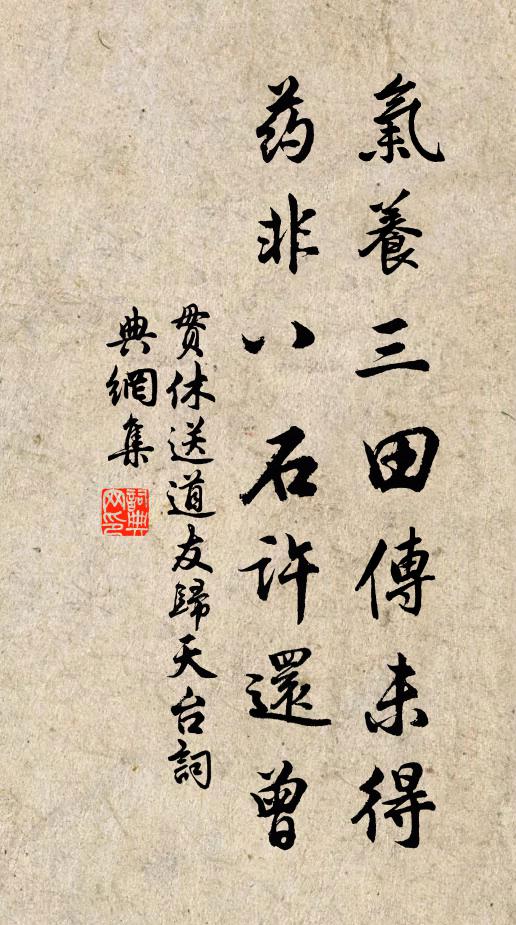 氣養三田傳未得
药非八石許還曾
貫休送道友歸天台詞
典網集
詞典
网印